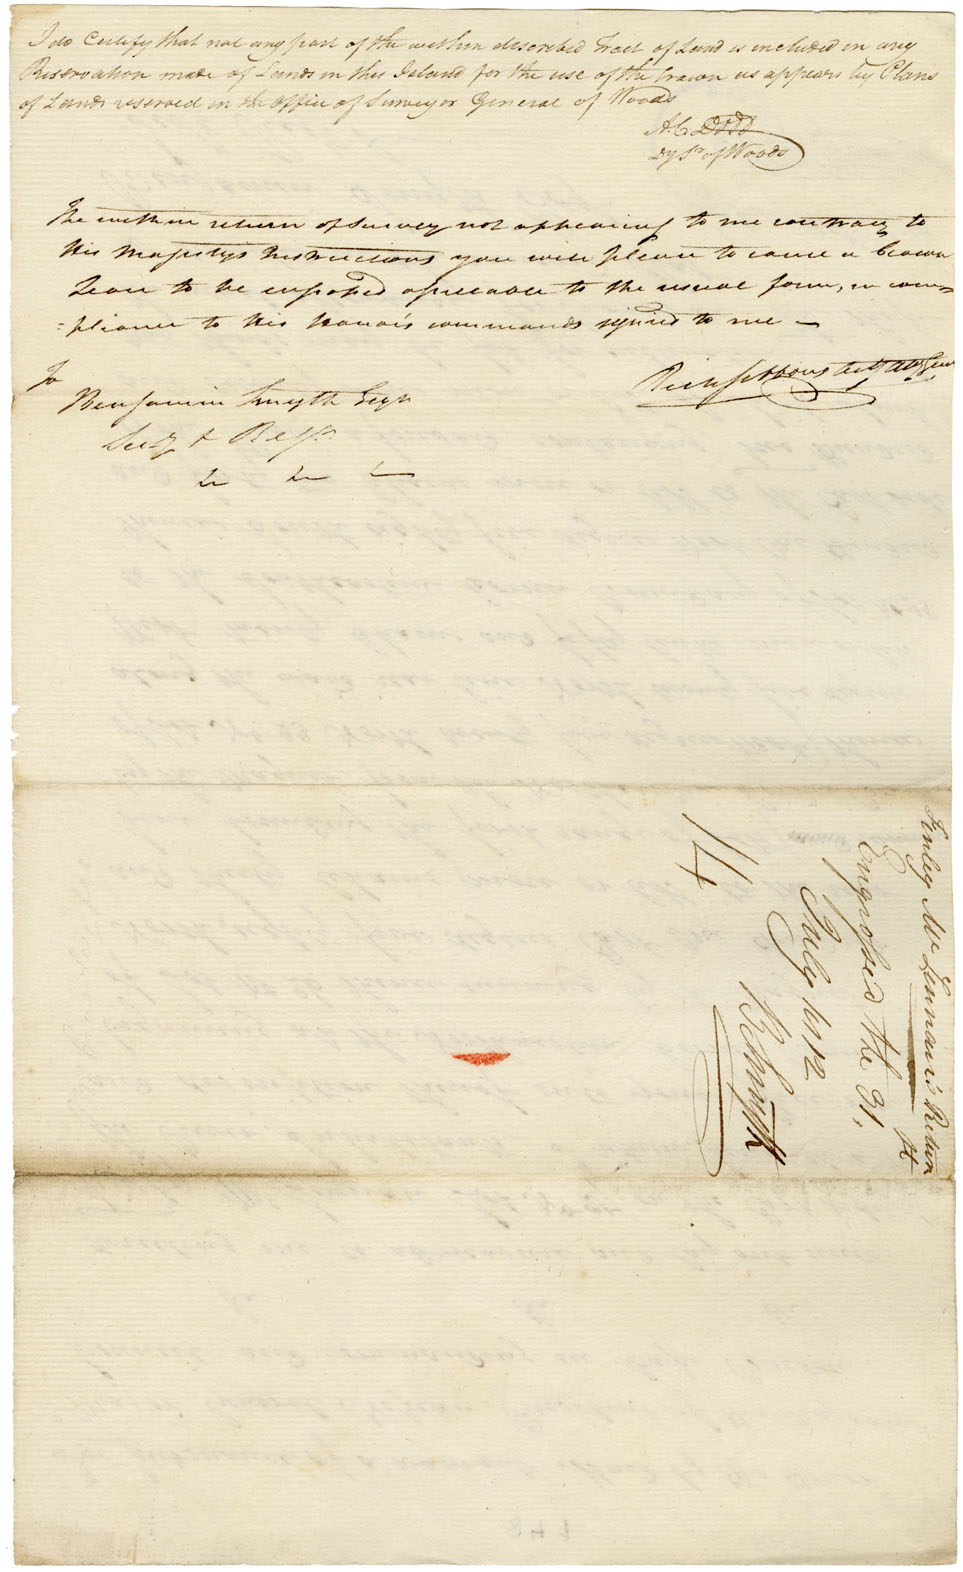 I do Certify that not any part of the within described Tract of Land is included in any
Reservation made of Lands in this Island for the use of the Crown as appears by Plans
of Lands reserved in the Office of Surveyor General of Woods
A. C. Dodd
Dy Sr of Woods
The within return of Survey not appearing to me contrary to
His Majestys Instructions you will please to cause a Crown
Lease to be engrossed agreeable to the usual form, in com=
=pliance to His Honor's commands signified to me —
Richd Gibbons Atty Genl
To
Benjamin Smyth Esqr
Secy & Regr
Finley Mc Lennan's Return
Engrossed the 21,
July 1812
B Smyth
14